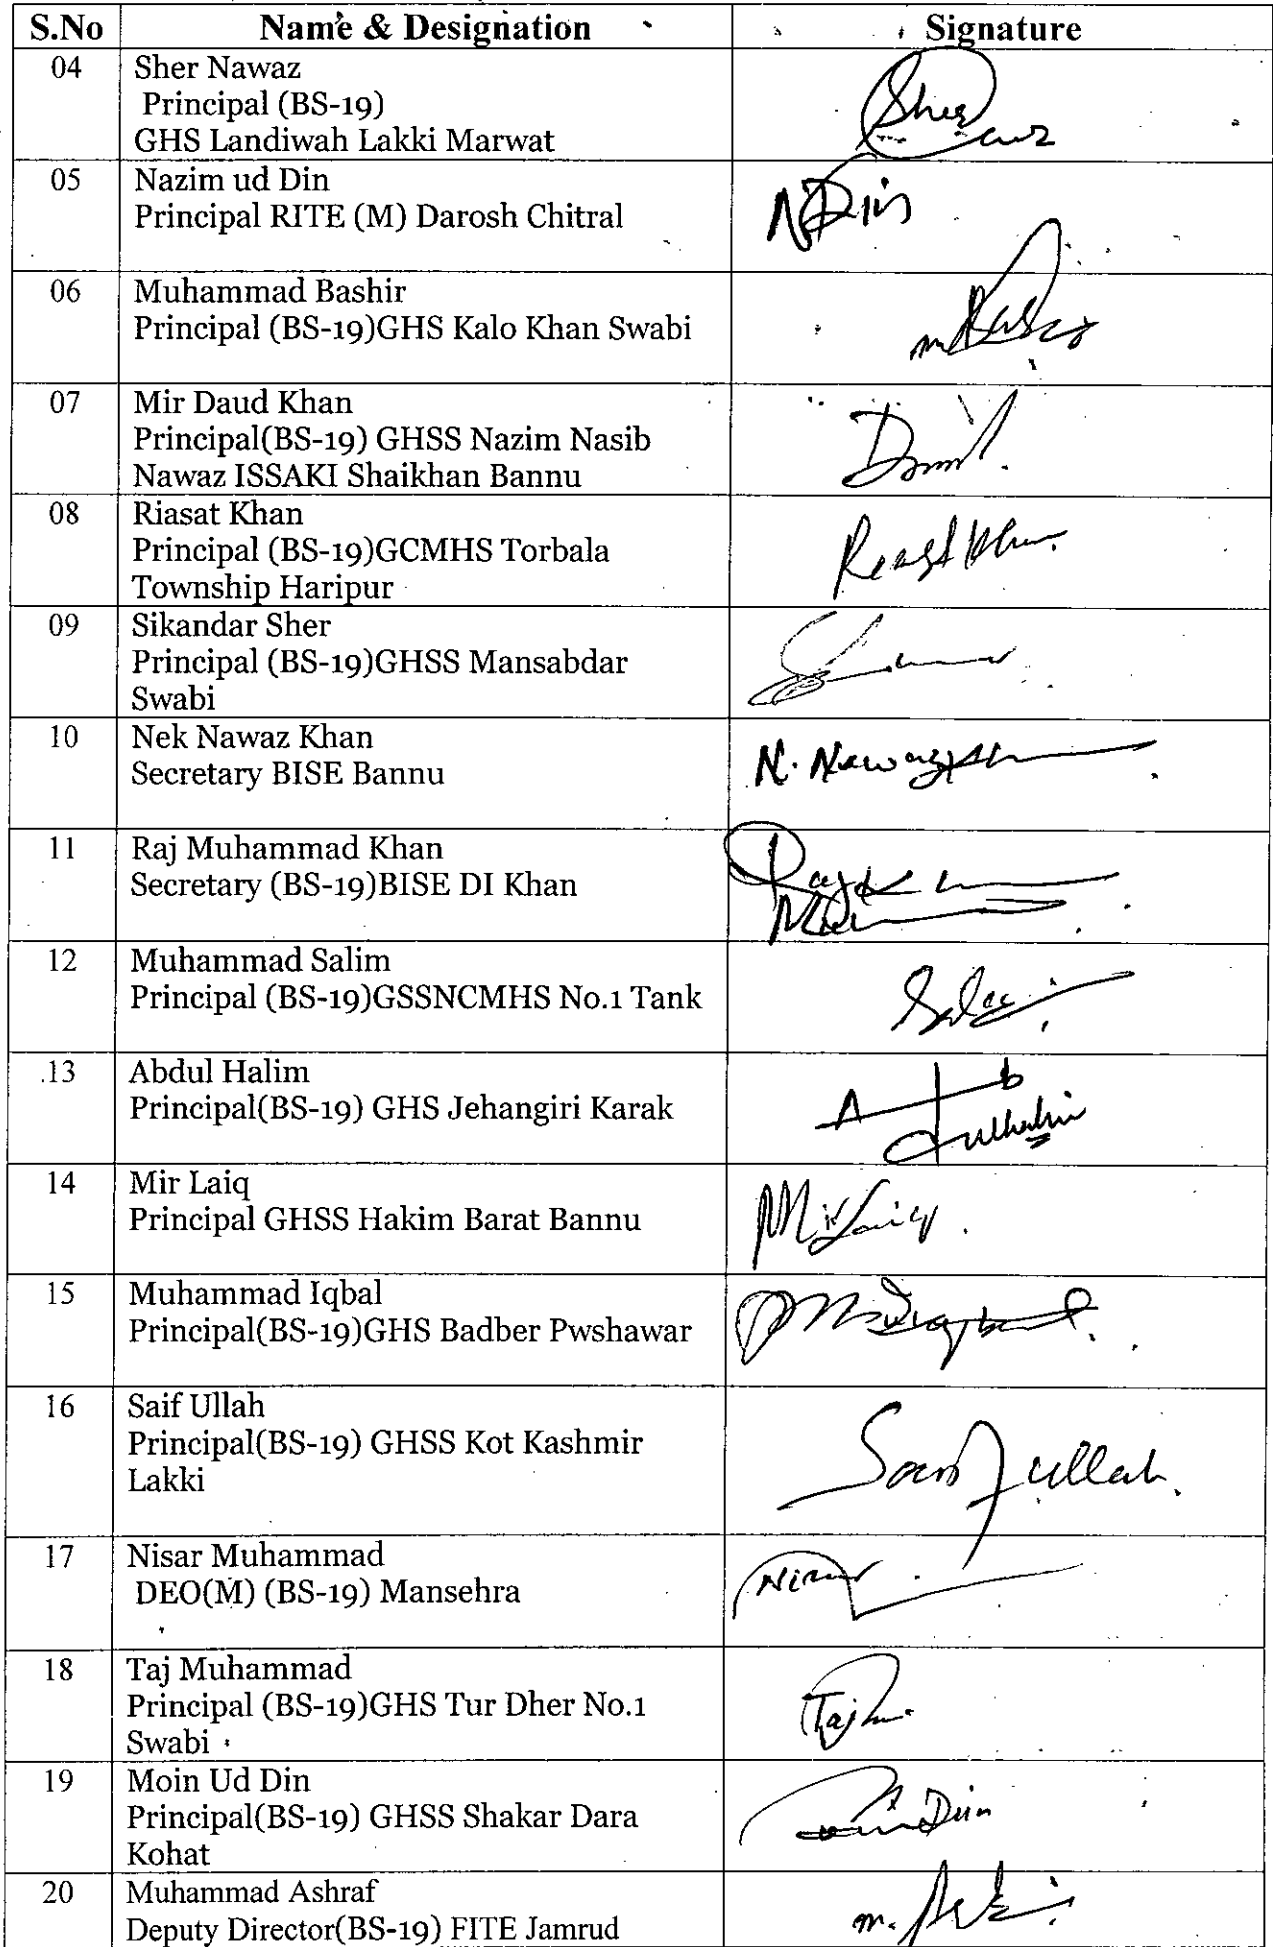 S.No Name & Designation Signature
04 Sher Nawaz
Principal (BS-19)
GHS Landiwah Lakki Marwat
Sher
05 Nazim ud Din
Principal RITE (M) Darosh Chitral
NDin
06 Muhammad Bashir
Principal (BS-19)GHS Kalo Khan Swabi
07 Mir Daud Khan
Principal(BS-19) GHSS Nazim Nasib
Nawaz ISSAKI Shaikhan Bannu
08 Riasat Khan
Principal (BS-19)GCMHS Torbala
Township Haripur
09 Sikandar Sher
Principal (BS-19)GHSS Mansabdar
Swabi
10 Nek Nawaz Khan
Secretary BISE Bannu
N. Nawaz
11 Raj Muhammad Khan
Secretary (BS-19)BISE DI Khan
12 Muhammad Salim
Principal (BS-19)GSSNCMHS No.1 Tank
13 Abdul Halim
Principal(BS-19) GHS Jehangiri Karak
14 Mir Laiq
Principal GHSS Hakim Barat Bannu
Mir Laiq
15 Muhammad Iqbal
Principal(BS-19)GHS Badber Pwshawar
16 Saif Ullah
Principal(BS-19) GHSS Kot Kashmir
Lakki
Saifullah
17 Nisar Muhammad
DEO(M) (BS-19) Mansehra
18 Taj Muhammad
Principal (BS-19)GHS Tur Dher No.1
Swabi
Taj
19 Moin Ud Din
Principal(BS-19) GHSS Shakar Dara
Kohat
Din
20 Muhammad Ashraf
Deputy Director(BS-19) FITE Jamrud